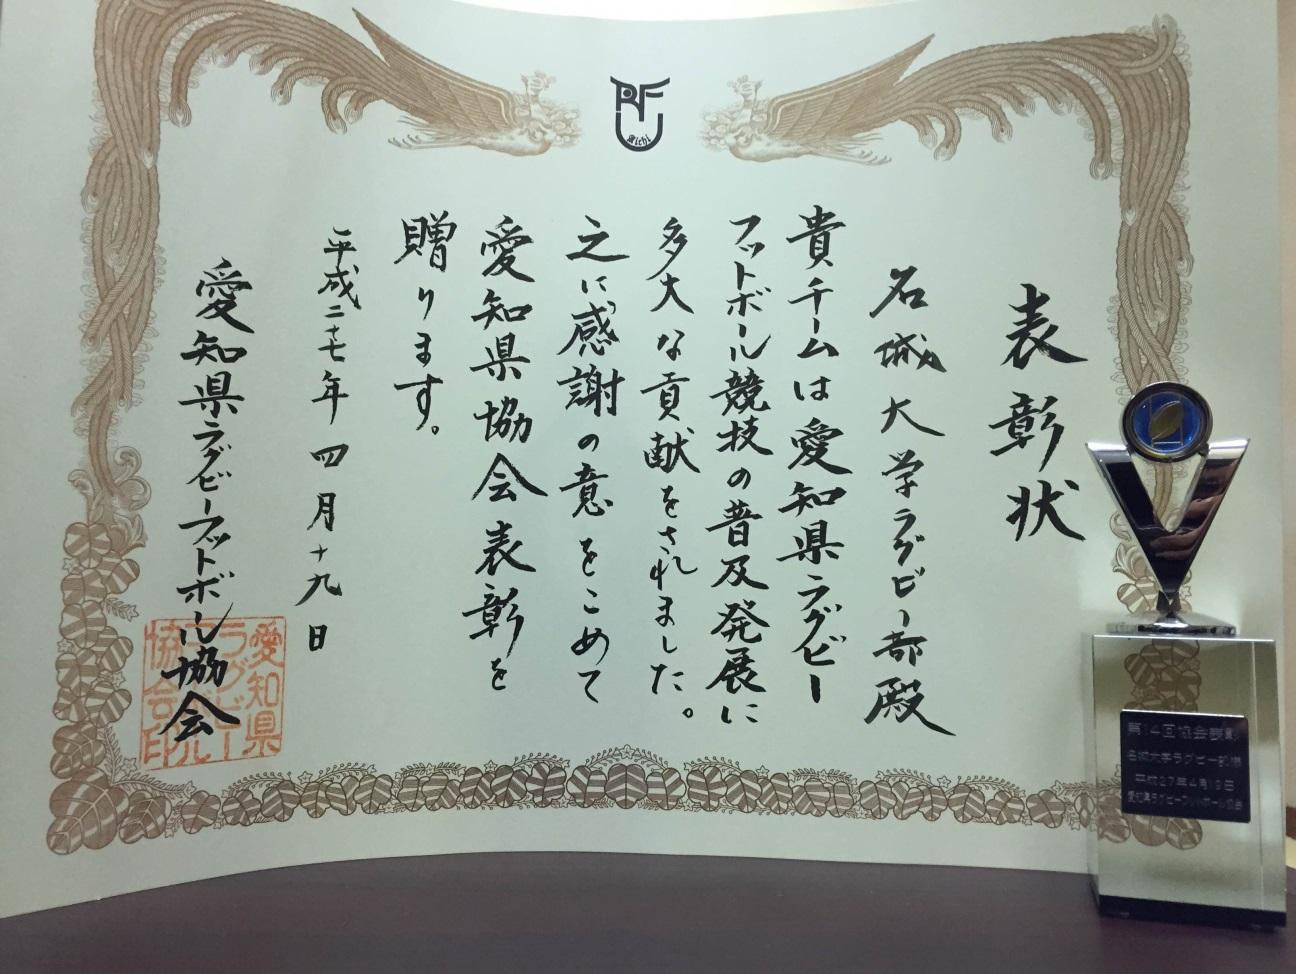 RFU
Aichi
表彰状
名城大学ラグビー部殿
貴チームは愛知県ラグビー
フットボール競技の普及発展に
多大な貢献をされました。
之に感謝の意をこめて
愛知県協会表彰を
贈ります。
平成二十七年四月十九日
愛知県ラグビーフットボール協会
愛知県
ラグビー
フットボール
協会印
第14回協会表彰
名城大学ラグビー部様
平成27年4月19日
愛知県ラグビーフットボール協会